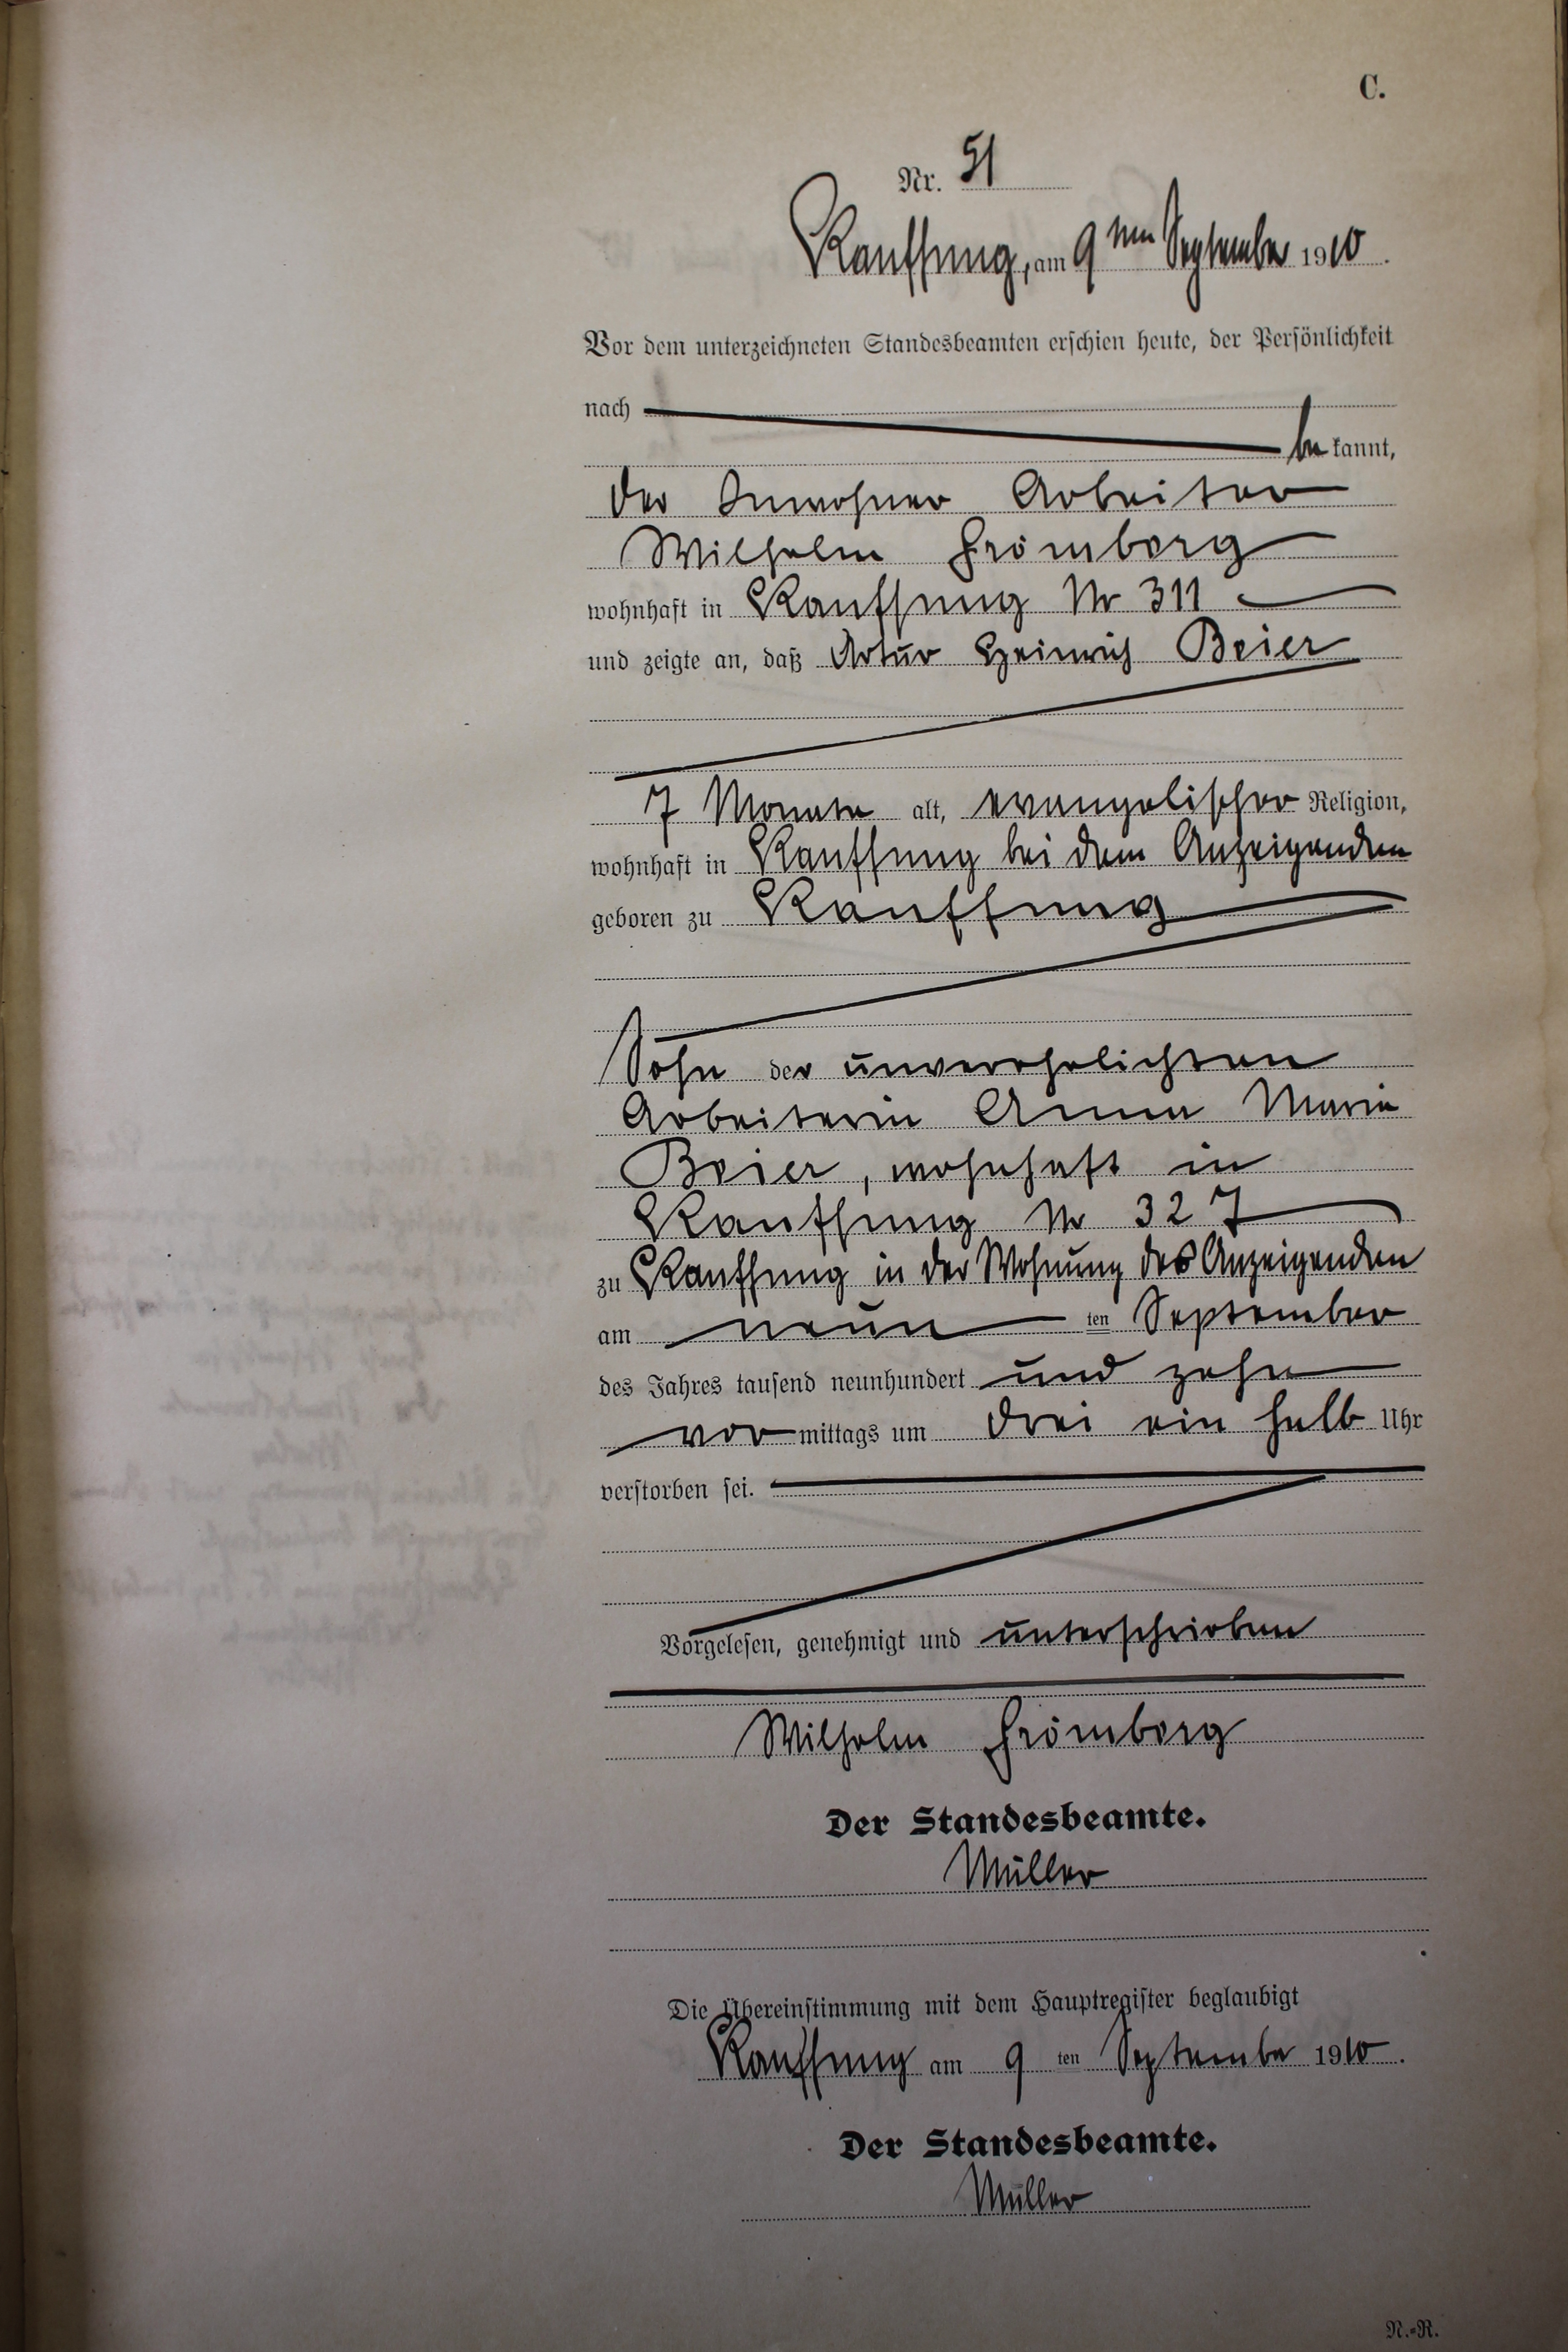 C.
Nr. 51
Kauffung, am 9ten September 1910.
Vor dem unterzeichneten Standesbeamten erschien heute, der Persönlichkeit
nach
bekannt,
der Inwohner Arbeiter
Wilhelm Frömberg
wohnhaft in Kauffung Nr 311
und zeigte an, daß Artur Heinrich Beier
7 Monate alt, evangelischer Religion,
wohnhaft in Kauffung bei dem Anzeigenden
geboren zu Kauffung
Sohn der unverehelichten
Arbeiterin Anna Maria
Beier, wohnhaft in
Kauffung Nr 327
zu Kauffung in der Wohnung des Anzeigenden
am neun ten September
des Jahres tausend neunhundert und zehn
vor mittags um drei ein halb Uhr
verstorben sei.
Vorgelesen, genehmigt und unterschrieben
Wilhelm Frömberg
Der Standesbeamte.
Müller
Die Übereinstimmung mit dem Hauptregister beglaubigt
Kauffung am 9 ten September 1910.
Der Standesbeamte.
Müller
N.=R.